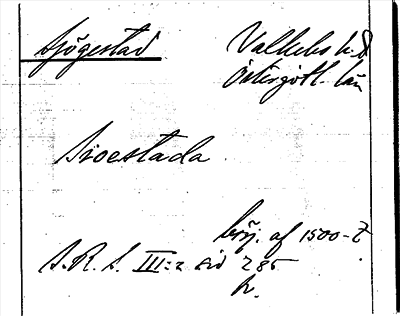 Sjögestad
Valkebo h.d
Östergötl. län
Sioestada
börj. af 1500-t.
S.R.S. III:2 sid 285
h.